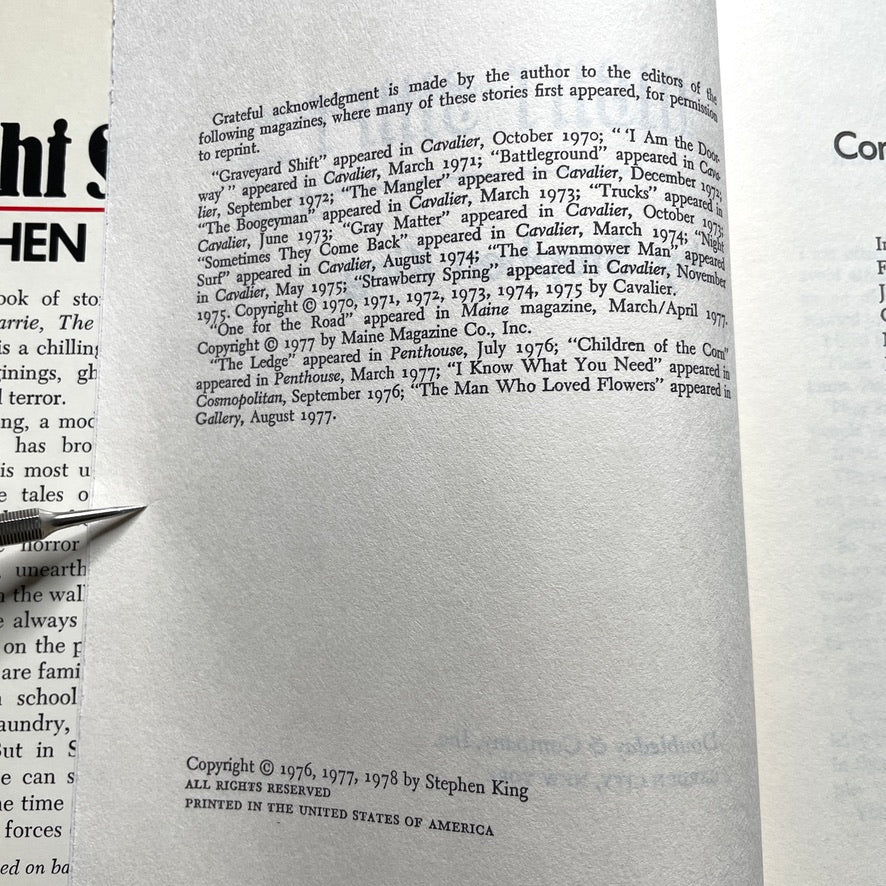 ht S
HEN
ook of sto
arrie, The
is a chilling
ginings, gh
l terror.
ng, a mod
has bro
is most u
e tales o
horror
unearth
n the wal
e always
on the p
are fami
school
aundry,
But in S
e can s
ne time
forces
ed on ba
Grateful acknowledgment is made by the author to the editors of the
following magazines, where many of these stories first appeared, for permission
to reprint.
"Graveyard Shift" appeared in Cavalier, October 1970; " 'I Am the Door-
way' " appeared in Cavalier, March 1971; "Battleground" appeared in Cava-
lier, September 1972; "The Mangler" appeared in Cavalier, December 1972;
"The Boogeyman" appeared in Cavalier, March 1973; "Trucks" appeared in
Cavalier, June 1973; "Gray Matter" appeared in Cavalier, October 1973;
"Sometimes They Come Back" appeared in Cavalier, March 1974; "Night
Surf" appeared in Cavalier, August 1974; "The Lawnmower Man", appeared
in Cavalier, May 1975; "Strawberry Spring" appeared in Cavalier, November
1975. Copyright © 1970, 1971, 1972, 1973, 1974, 1975 by Cavalier.
"One for the Road" appeared in Maine magazine, March/April 1977.
Copyright © 1977 by Maine Magazine Co., Inc.
"The Ledge" appeared in Penthouse, July 1976; "Children of the Corn"
appeared in Penthouse, March 1977; "I Know What You Need" appeared in
Cosmopolitan, September 1976; "The Man Who Loved Flowers" appeared in
Gallery, August 1977.
Copyright © 1976, 1977, 1978 by Stephen King
ALL RIGHTS RESERVED
PRINTED IN THE UNITED STATES OF AMERICA
Con
In
F
J